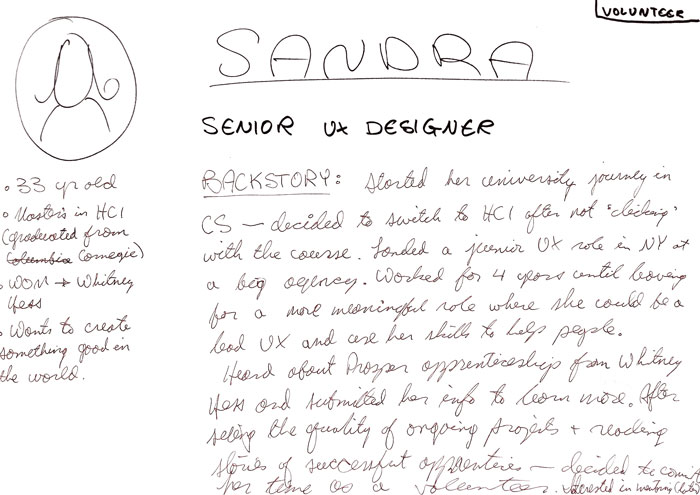 VOLUNTEER
SANDRA
SENIOR UX DESIGNER
• 33 yr old
• Masters in HCI
(graduated from
Columbia Carnegie)
• WOM → Whitney
Hess
• Wants to create
something good in
the world.
BACKSTORY: Started her university journey in
CS — decided to switch to HCI after not "clicking"
with the course. Landed a junior UX role in NY at
a big agency. Worked for 4 years until leaving
for a more meaningful role where she could be a
lead UX and use her skills to help people.
Heard about Prosper apprenticeship from Whitney
Hess and submitted her info to learn more. After
seeing the quality of ongoing projects + reading
stories of successful apprenties — decided to commit
her time as a volunteer. Interested in mentoring